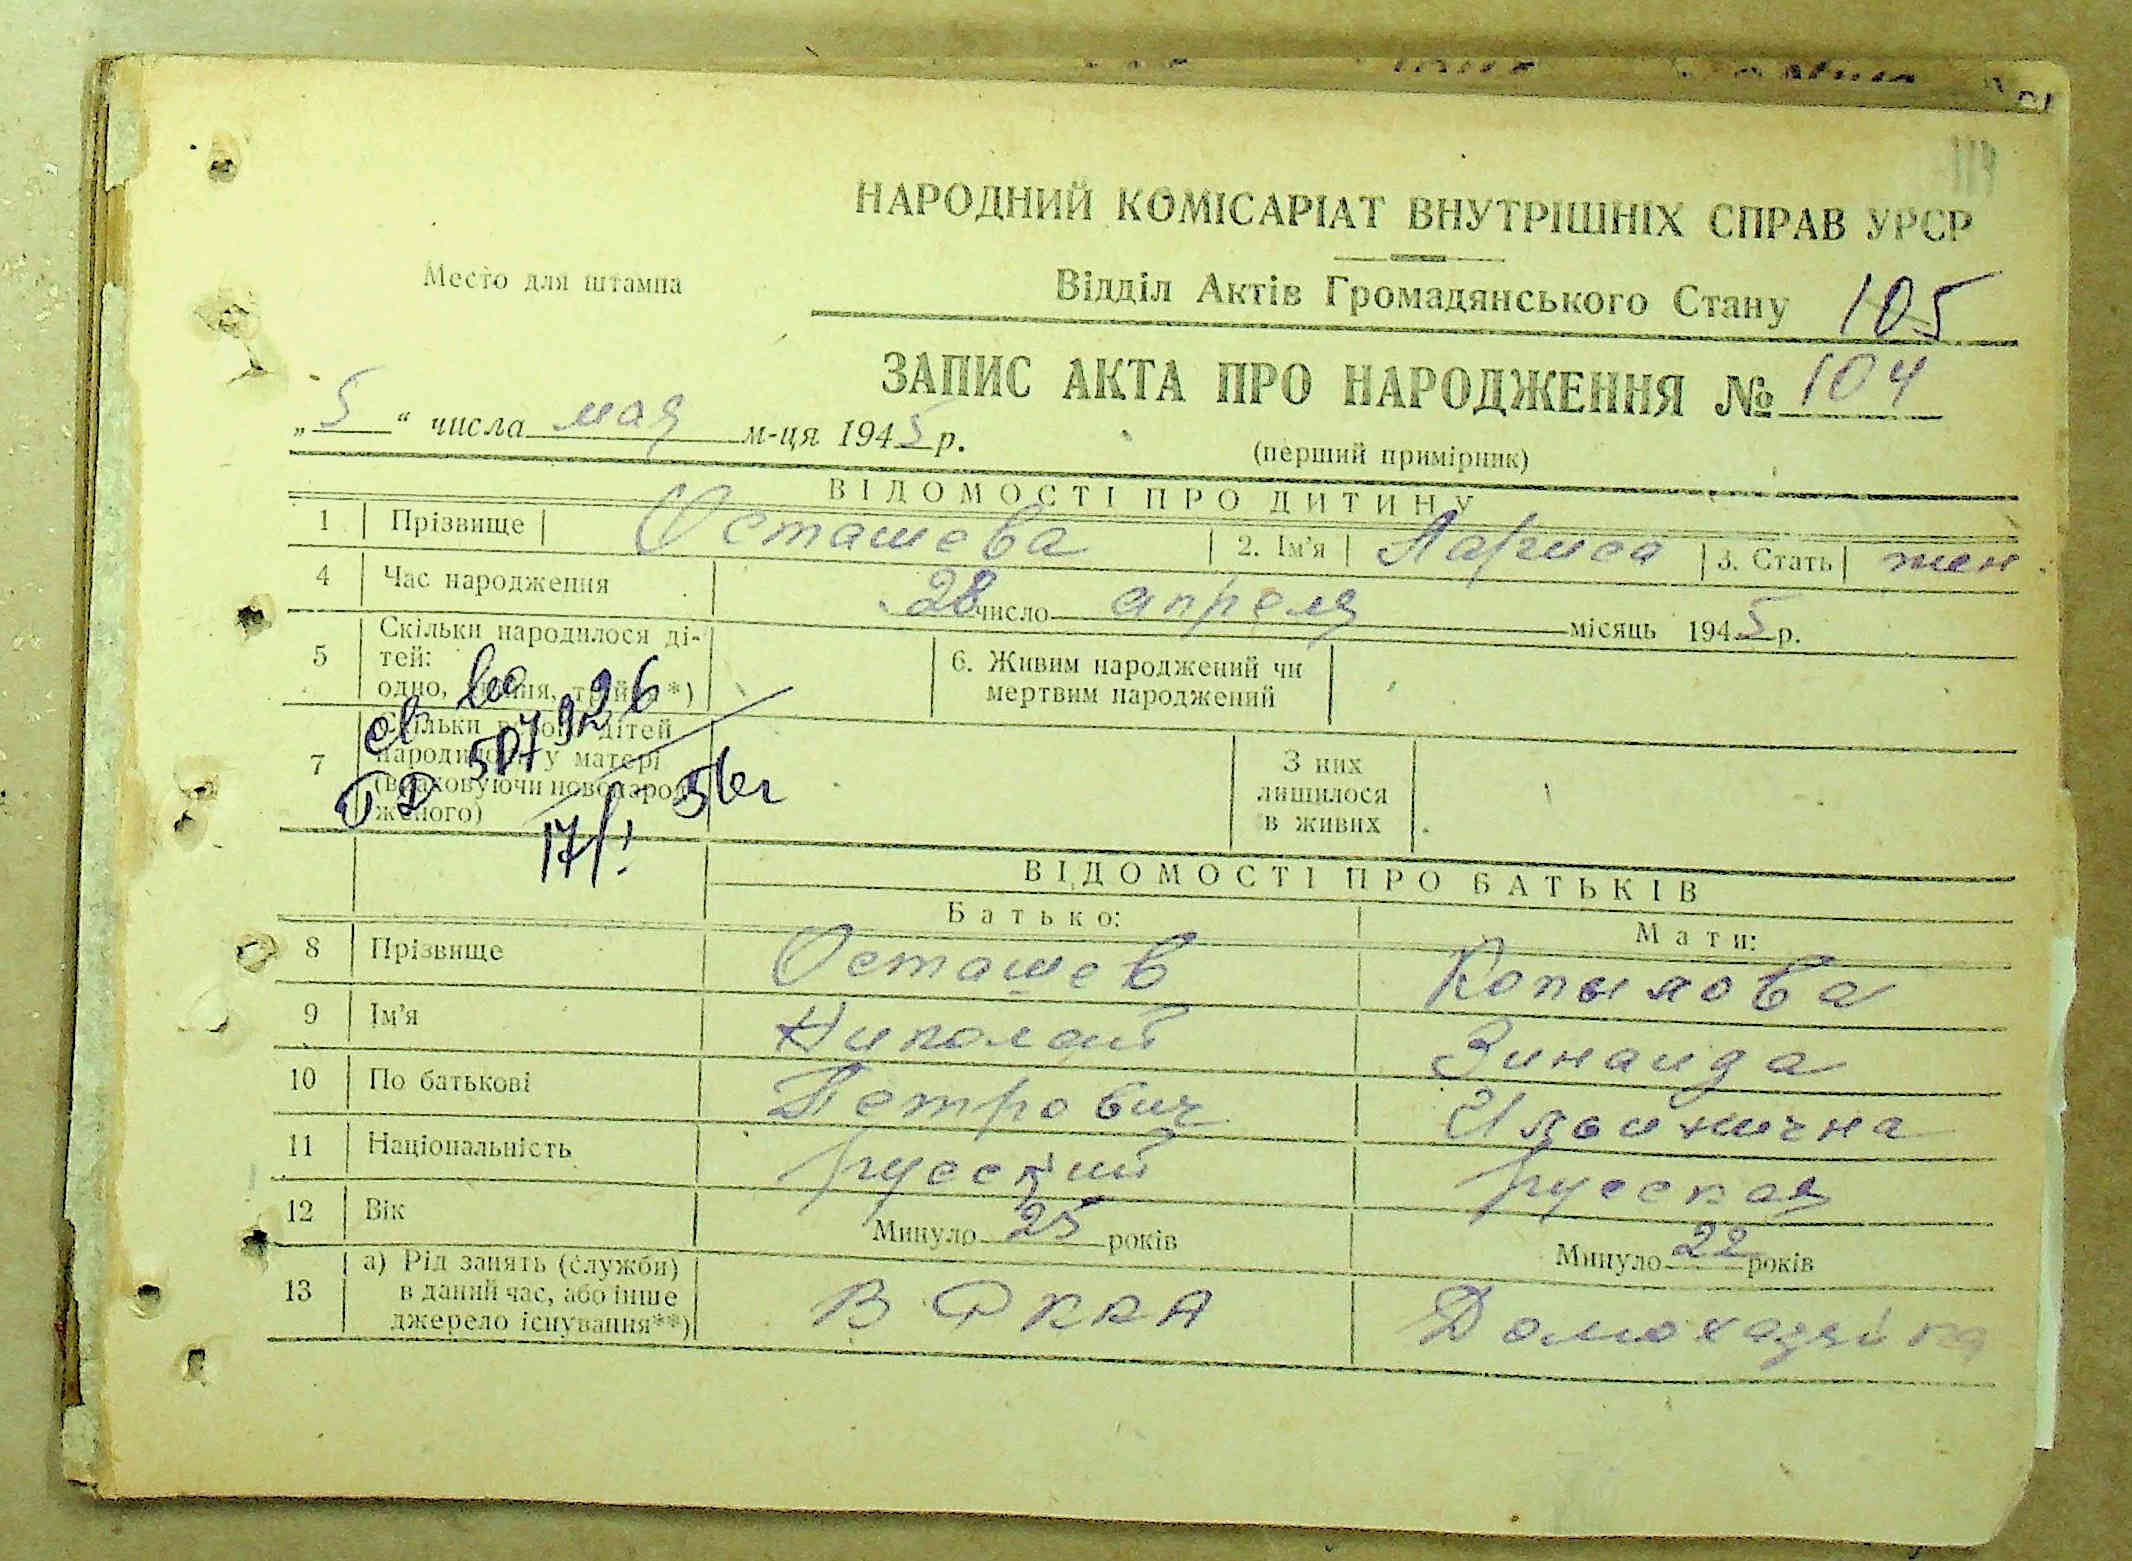 НАРОДНИЙ КОМІСАРІАТ ВНУТРІШНІХ СПРАВ УРСР
Место для штампа
Відділ Актів Громадянського Стану 105
ЗАПИС АКТА ПРО НАРОДЖЕННЯ № 104
„5“ числа мая м-ця 1945 р.
(перший примірник)
ВІДОМОСТІ ПРО ДИТИНУ
1 Прізвище Осташева 2. Ім'я Лариса 3. Стать жен
4 Час народження 28 число апреля місяць 1945 р.
5 Скільки народилося ді-
тей:
одно, двійня, трійня*)
6. Живим народжений чи
мертвим народжений
7 Скільки всього дітей
народилося у матері
(враховуючи новонарод-
женого)
З них
лишилося
в живих
507926
ВІДОМОСТІ ПРО БАТЬКІВ
Батько: Мати:
8 Прізвище Осташев Копылова
9 Ім'я Николай Зинаида
10 По батькові Петрович Ильинична
11 Національність русский русская
12 Вік Минуло 25 років Минуло 22 років
13 а) Рід занять (служби)
в даний час, або інше
джерело існування**)
В РККА Домохазяйка